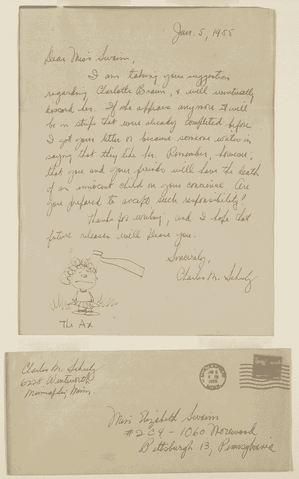 Jan. 5, 1955
Dear Miss Swaim,
I am taking your suggestion
regarding Charlotte Braun, & will eventually
discard her. If she appears anymore it will
be in strips that were already completed before
I got your letter or because someone writes in
saying that they like her. Remember, however,
that you and your friends will have the death
of an innocent child on your conscience. Are
you prepared to accept such responsibility?
Thanks for writing, and I hope that
future releases will please you.
Sincerely,
Charles M. Schulz
The Ax
Charles M. Schulz
6228 Wentworth
Minneapolis, Minn.
Miss Elizabeth Swaim
#204 - 1060 Morewood
Pittsburgh 13, Pennsylvania